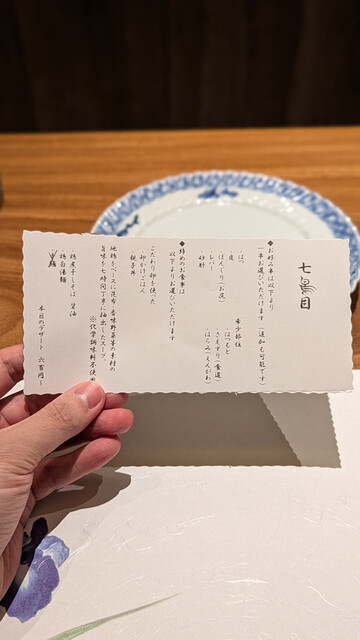 七鳥目
◆お好み串は以下より
一串お選びいただけます(追加も可能です)
・はつ
・皮
・ぼんじり(お皮)
・レバー
・砂肝
希少部位
・はつもと
・さえずり(食道)
・はらみ(えんがわ)
◆締めのお食事は
以下よりお選びいただけます
こだわり卵を使った
・卵かけごはん
・親子丼
地鶏をベースに昆布・香味野菜等の素材の
旨味を七時間丁寧に抽出したスープ。
※化学調味料不使用
・鶏煮干しそば 醤油
・鶏白湯麺
本日のデザート 六百円〜